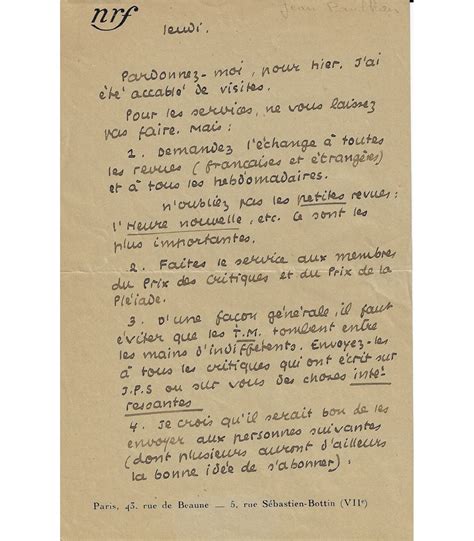 nrf
Jean Paulhan
Jeudi.
Pardonnez-moi, pour hier. J'ai
été accablé de visites.
Pour les services, ne vous laissez
pas faire. Mais :
1. Demandez l'échange à toutes
les revues (françaises et étrangères)
et à tous les hebdomadaires.
n'oubliez pas les petites revues :
l'Heure nouvelle, etc. Ce sont les
plus importantes.
2. Faites le service aux membres
du Prix des Critiques et du Prix de la
Pléiade.
3. D'une façon générale, il faut
éviter que les T.M. tombent entre
les mains d'indifférents. Envoyez-les
à tous les critiques qui ont écrit sur
J.P.S ou sur vous des choses inté-
ressantes
4. Je crois qu'il serait bon de les
envoyer aux personnes suivantes
(dont plusieurs auront d'ailleurs
la bonne idée de s'abonner).
Paris, 43, rue de Beaune — 5, rue Sébastien-Bottin (VIIe)